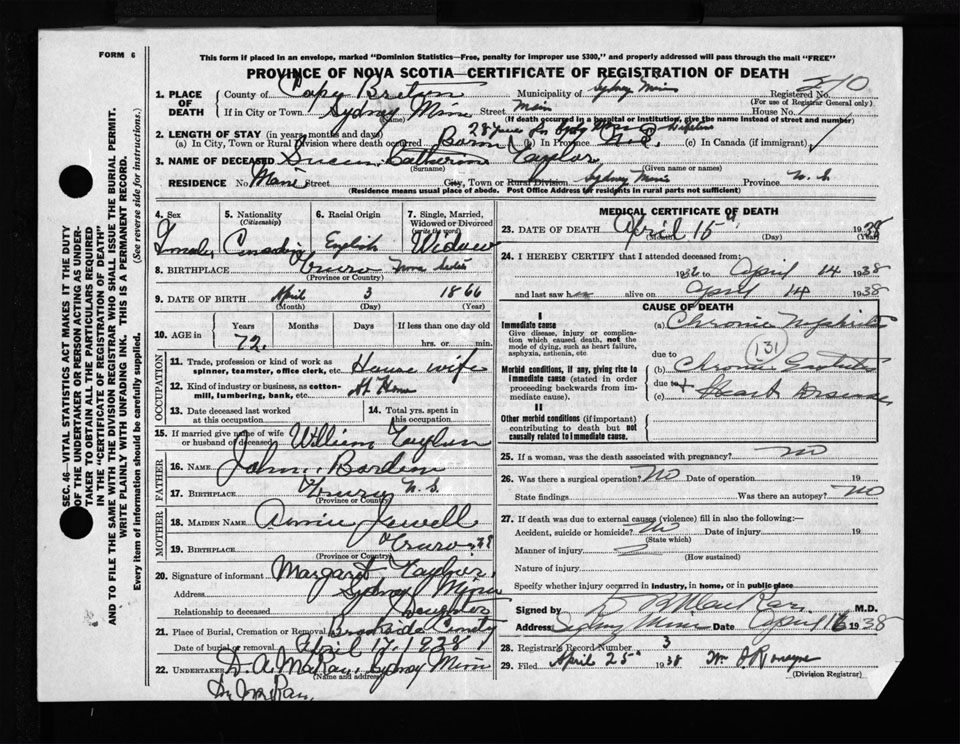 FORM 6
This form if placed in an envelope, marked "Dominion Statistics—Free, penalty for improper use $300," and properly addressed will pass through the mail "FREE"
PROVINCE OF NOVA SCOTIA—CERTIFICATE OF REGISTRATION OF DEATH
SEC. 46—VITAL STATISTICS ACT MAKES IT THE DUTY
OF THE UNDERTAKER OR PERSON ACTING AS UNDER-
TAKER TO OBTAIN ALL THE PARTICULARS REQUIRED
IN THE "CERTIFICATE OF REGISTRATION OF DEATH"
AND TO FILE THE SAME WITH THE DIVISION REGISTRAR WHO SHALL ISSUE THE BURIAL PERMIT.
WRITE PLAINLY WITH UNFADING INK. THIS IS A PERMANENT RECORD.
Every item of information should be carefully supplied. (See reverse side for instructions.)
1. PLACE OF DEATH
County of Cape Breton Municipality of Sydney Mines Registered No. 310
(For use of Registrar General only)
If in City or Town Sydney Mines Street Main House No.
(Name) (If death occurred in a hospital or institution, give the name instead of street and number)
2. LENGTH OF STAY (in years, months and days)
(a) In City, Town or Rural Division where death occurred 28 years (b) In Province (c) In Canada (if immigrant)
3. NAME OF DECEASED Susan Catherine Taylor
(Surname) (Given name or names)
RESIDENCE No. Main Street City, Town or Rural Division Sydney Mines Province N.S.
(Residence means usual place of abode. Post Office Address for residents in rural parts not sufficient)
4. Sex Female
5. Nationality (Citizenship) Canadian
6. Racial Origin English
7. Single, Married, Widowed or Divorced (write the word) Widow
8. BIRTHPLACE Truro Nova Scotia
(Province or Country)
9. DATE OF BIRTH April 3 1866
(Month) (Day) (Year)
10. AGE in Years Months Days If less than one day old
72. hrs. or min.
OCCUPATION
11. Trade, profession or kind of work as
spinner, teamster, office clerk, etc. House wife
12. Kind of industry or business, as cotton-
mill, lumbering, bank, etc. At Home
13. Date deceased last worked at this occupation
14. Total yrs. spent in this occupation
15. If married give name of wife or husband of deceased William Taylor
FATHER
16. NAME John
17. BIRTHPLACE Truro N.S.
(Province or Country)
MOTHER
18. MAIDEN NAME Annie Jewell
19. BIRTHPLACE Truro
(Province or Country)
20. Signature of informant Margaret Taylor
Address Sydney Mines
Relationship to deceased Daughter
21. Place of Burial, Cremation or Removal Brookside
Date of burial or removal April 17, 1938
22. UNDERTAKER D. A. McRae, Sydney Mines
(Name and address)
MEDICAL CERTIFICATE OF DEATH
23. DATE OF DEATH April 15 1938
(Month) (Day) (Year)
24. I HEREBY CERTIFY that I attended deceased from:
1936 to April 14 1938
and last saw h alive on April 14 1938
CAUSE OF DEATH
I
Immediate cause
Give disease, injury or complica-
tion which caused death, not the
mode of dying, such as heart failure,
asphyxia, asthenia, etc.
(a) Chronic Nephritis
131
due to
Morbid conditions, if any, giving rise to
immediate cause (stated in order
proceeding backwards from im-
mediate cause).
(b) Chronic
due to
(c) Heart Disease
II
Other morbid conditions (if important)
contributing to death but not
causally related to immediate cause.
25. If a woman, was the death associated with pregnancy? no
26. Was there a surgical operation? NO Date of operation 19
State findings Was there an autopsy? NO
27. If death was due to external causes (violence) fill in also the following:—
Accident, suicide or homicide? no Date of injury 19
(State which)
Manner of injury
(How sustained)
Nature of injury
Specify whether injury occurred in industry, in home, or in public place
Signed by M.D.
Address Sydney Mines Date April 16 1938
28. Registrar's Record Number 3
29. Filed April 25 1938 Wm
(Division Registrar)